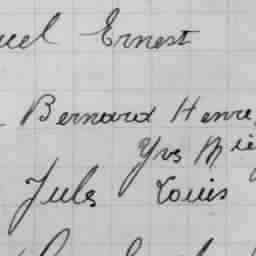 uel Ernest
Bernard Henri
Yvs M
Jules Louis